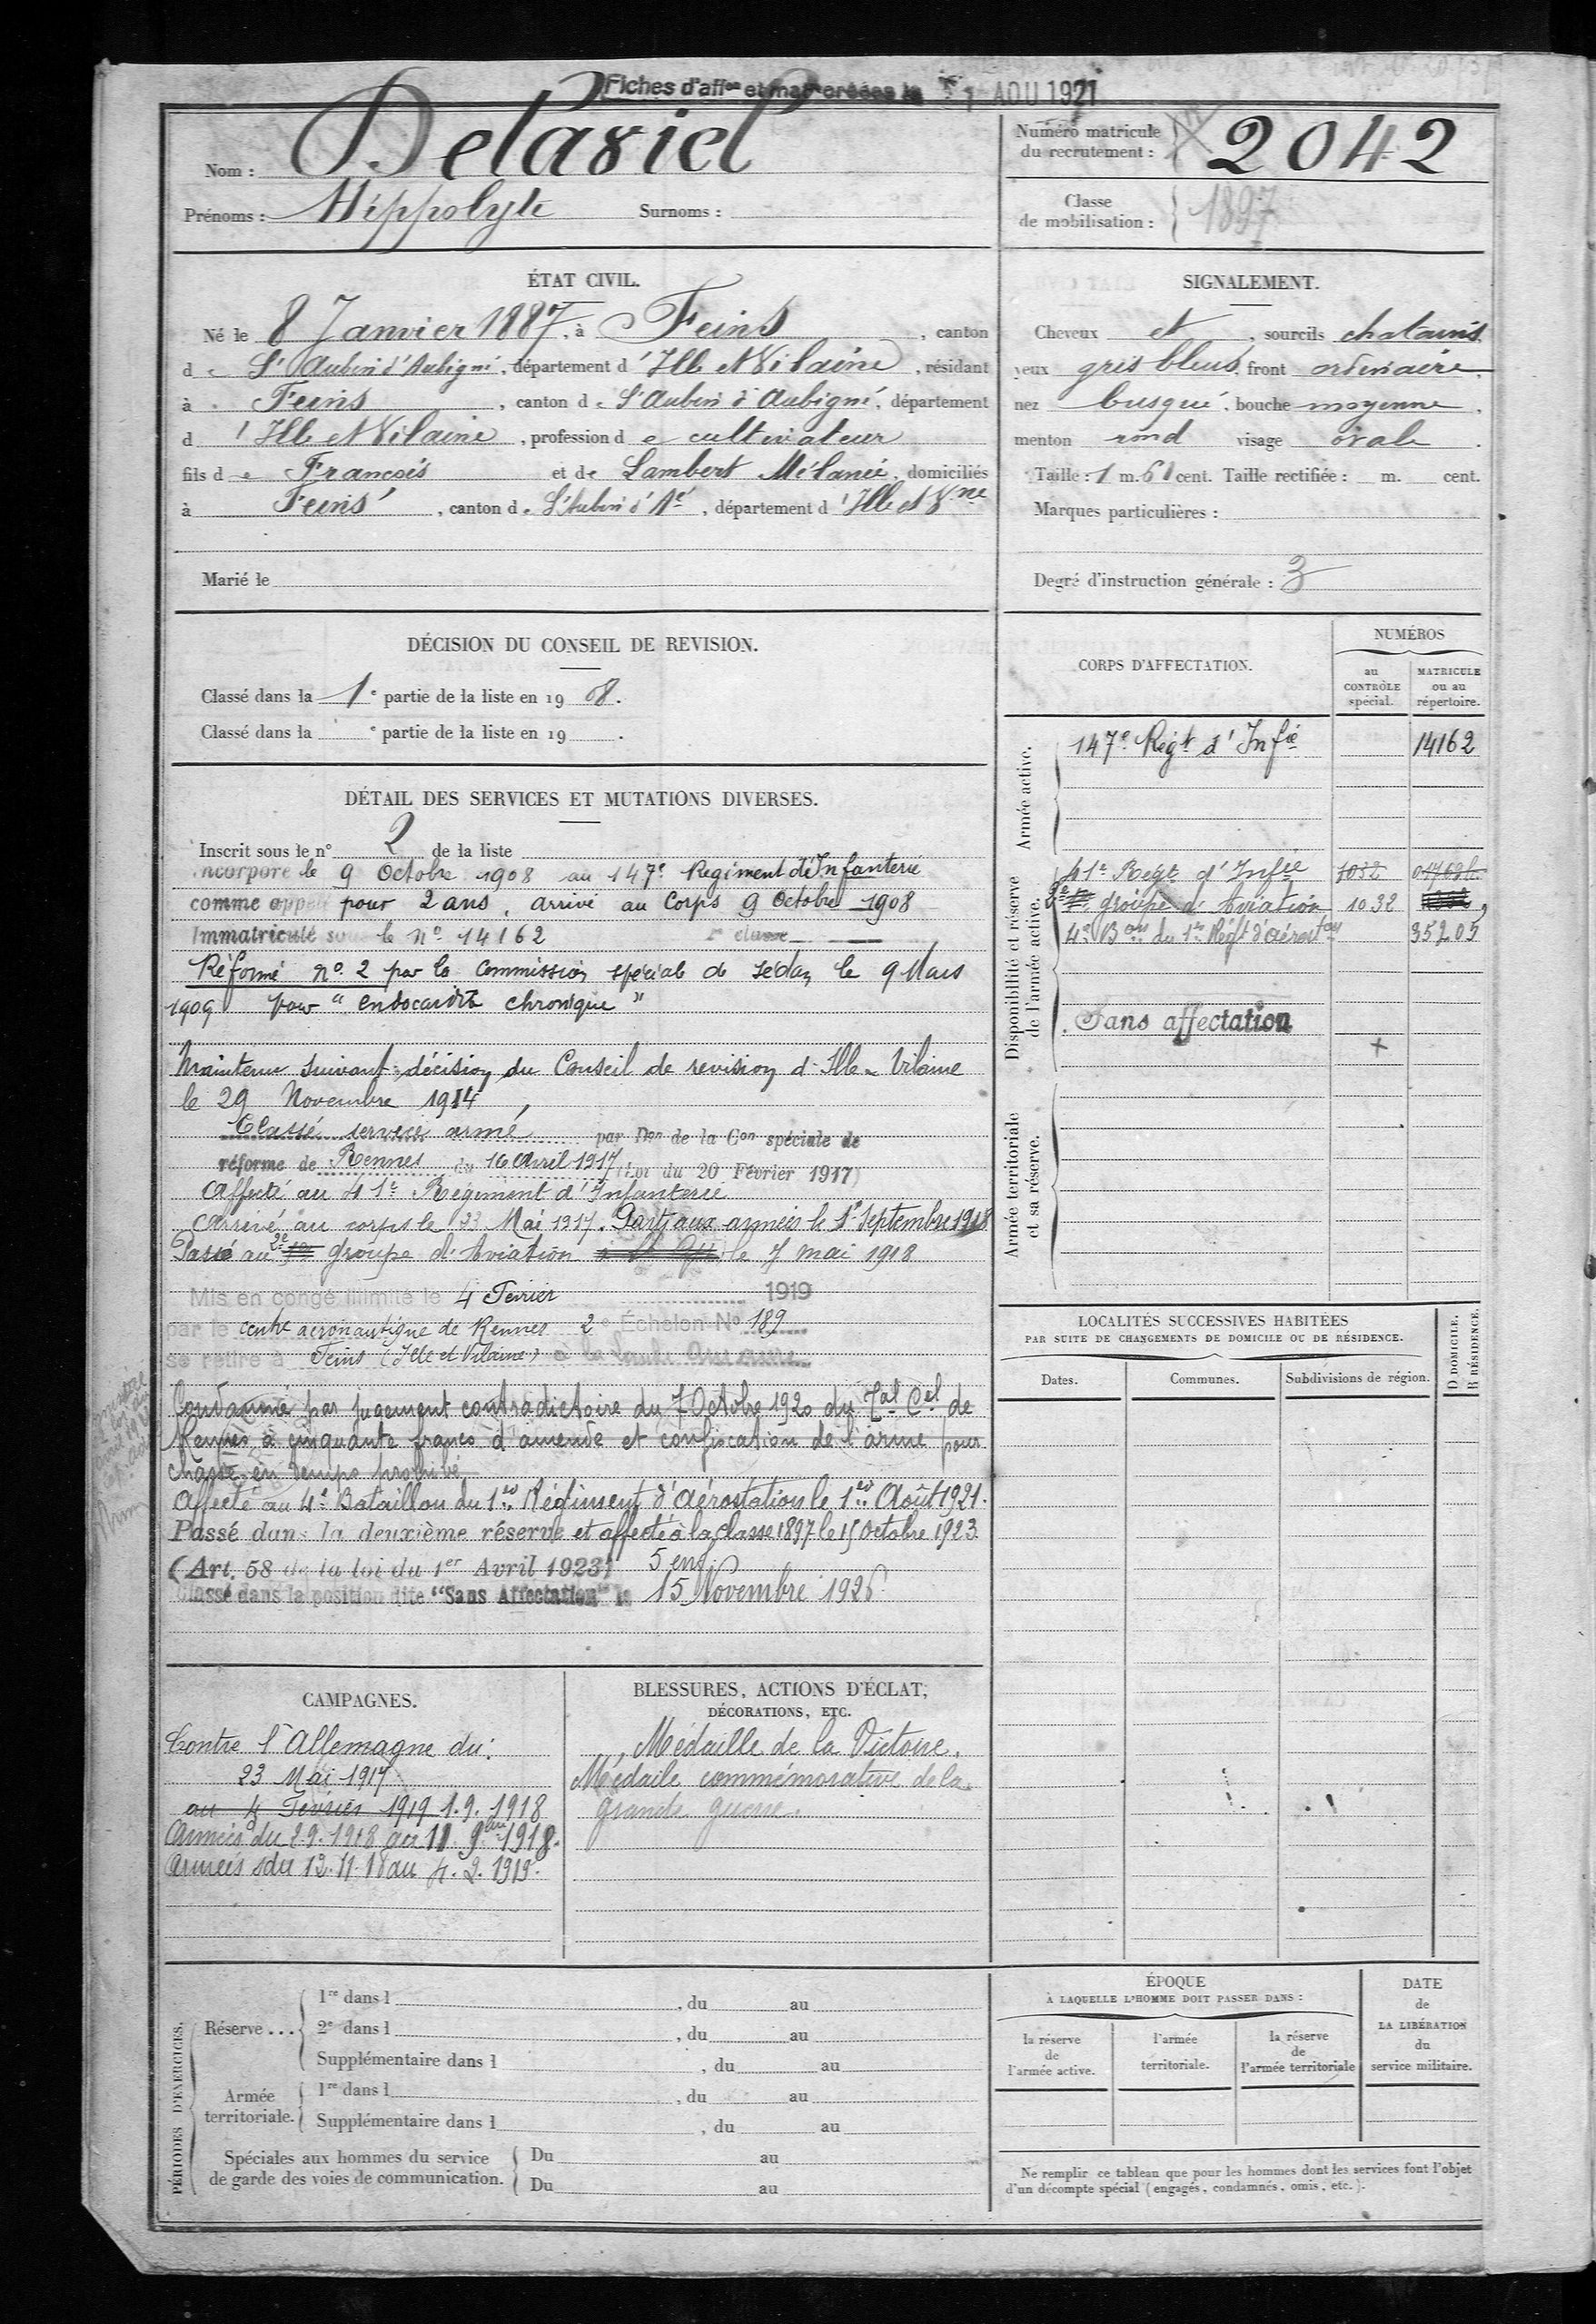 Fiches d'affon et mat créées le 1 AOU 1921
Nom : Delariel
Prénoms : Hippolyte Surnoms :
Numéro matricule
du recrutement : 2042
Classe
de mobilisation : 1897
ÉTAT CIVIL.
Né le 8 Janvier 1887, à Feins, canton
de St Aubin d'Aubigné, département d'Ille et Vilaine, résidant
à Feins, canton de St Aubin d'Aubigné, département
d'Ille et Vilaine, profession de cultivateur
fils de François et de Lambert Mélanie, domiciliés
à Feins, canton de St Aubin d'Aé, département d'Ille et Vne
Marié le
SIGNALEMENT.
Cheveux et, sourcils chatains
yeux gris bleus, front ordinaire,
nez busqué, bouche moyenne,
menton rond visage ovale.
Taille : 1 m. 61 cent. Taille rectifiée : m. cent.
Marques particulières :
Degré d'instruction générale : 3
DÉCISION DU CONSEIL DE REVISION.
Classé dans la 1e partie de la liste en 1908.
Classé dans la e partie de la liste en 19 .
DÉTAIL DES SERVICES ET MUTATIONS DIVERSES.
Inscrit sous le n° 2 de la liste
Incorporé le 9 Octobre 1908 au 147e Regiment d'Infanterie
comme appelé pour 2 ans, arrivé au Corps 9 Octobre 1908
Immatriculé sous le No 14162 classe
Réformé no 2 par la Commission spéciale de Sedan le 9 Mars
1909 pour "endocardite chronique"
Maintenu suivant décision du Conseil de revision d'Ille & Vilaine
le 29 Novembre 1914
Classé service armé par Don de la Con spéciale de
réforme de Rennes du 16 Avril 1917 (Loi du 20 Février 1917)
Affecté au 41e Régiment d'Infanterie
Arrivé au corps le 23 Mai 1917. Parti aux armées le 1er Septembre 1918
Passé au 2e groupe d'Aviation le 7 mai 1918
Mis en congé illimité le 4 Fevrier 1919
par le centre aeronautique de Rennes 2e Échelon No 189
se retire à Feins (Ille et Vilaine)
Condamné par jugement contradictoire du 7 Octobre 1920 du Tal Cel de
Rennes à cinquante francs d'amende et confiscation de l'arme pour
chasse en temps prohibé
Affecté au 4e Bataillon du 1er Régiment d'Aérostation le 1er Août 1921.
Passé dans la deuxième réserve et affecté à la classe 1897 le 15 Octobre 1923
(Art. 58 de la loi du 1er Avril 1923) 5 enf.
Classé dans la position dite "Sans Affectation" le 15 Novembre 1926
CORPS D'AFFECTATION.
NUMÉROS
au
CONTRÔLE
spécial.
MATRICULE
ou au
répertoire.
Armée active.
147e Regt d'Infie 14162
Disponibilité et réserve
de l'armée active.
41e Regt d'Infie 1032
2e groupe d'Aviation 1032
4e Bon du 1er Régt d'aéroston 35205
Sans affectation
Armée territoriale
et sa réserve.
LOCALITÉS SUCCESSIVES HABITÉES
PAR SUITE DE CHANGEMENTS DE DOMICILE OU DE RÉSIDENCE.
Dates. Communes. Subdivisions de région.
D DOMICILE.
R RÉSIDENCE.
CAMPAGNES.
Contre l'Allemagne du :
23 Mai 1917
au 4 Fevrier 1919 1.9.1918
Armées du 2.9.1918 au 11 9bre 1918.
Armées du 12.11.18 au 4.2.1919.
BLESSURES, ACTIONS D'ÉCLAT,
DÉCORATIONS, ETC.
Médaille de la Victoire.
Médaile commémorative de la
grande guerre.
PÉRIODES D'EXERCICES.
Réserve... 1re dans l , du au
2e dans l , du au
Supplémentaire dans l , du au
Armée
territoriale. 1re dans l , du au
Supplémentaire dans l , du au
Spéciales aux hommes du service
de garde des voies de communication. Du au
Du au
ÉPOQUE
À LAQUELLE L'HOMME DOIT PASSER DANS :
la réserve
de
l'armée active.
l'armée
territoriale.
la réserve
de
l'armée territoriale
DATE
de
LA LIBÉRATION
du
service militaire.
Ne remplir ce tableau que pour les hommes dont les services font l'objet
d'un décompte spécial (engagés, condamnés, omis, etc.).